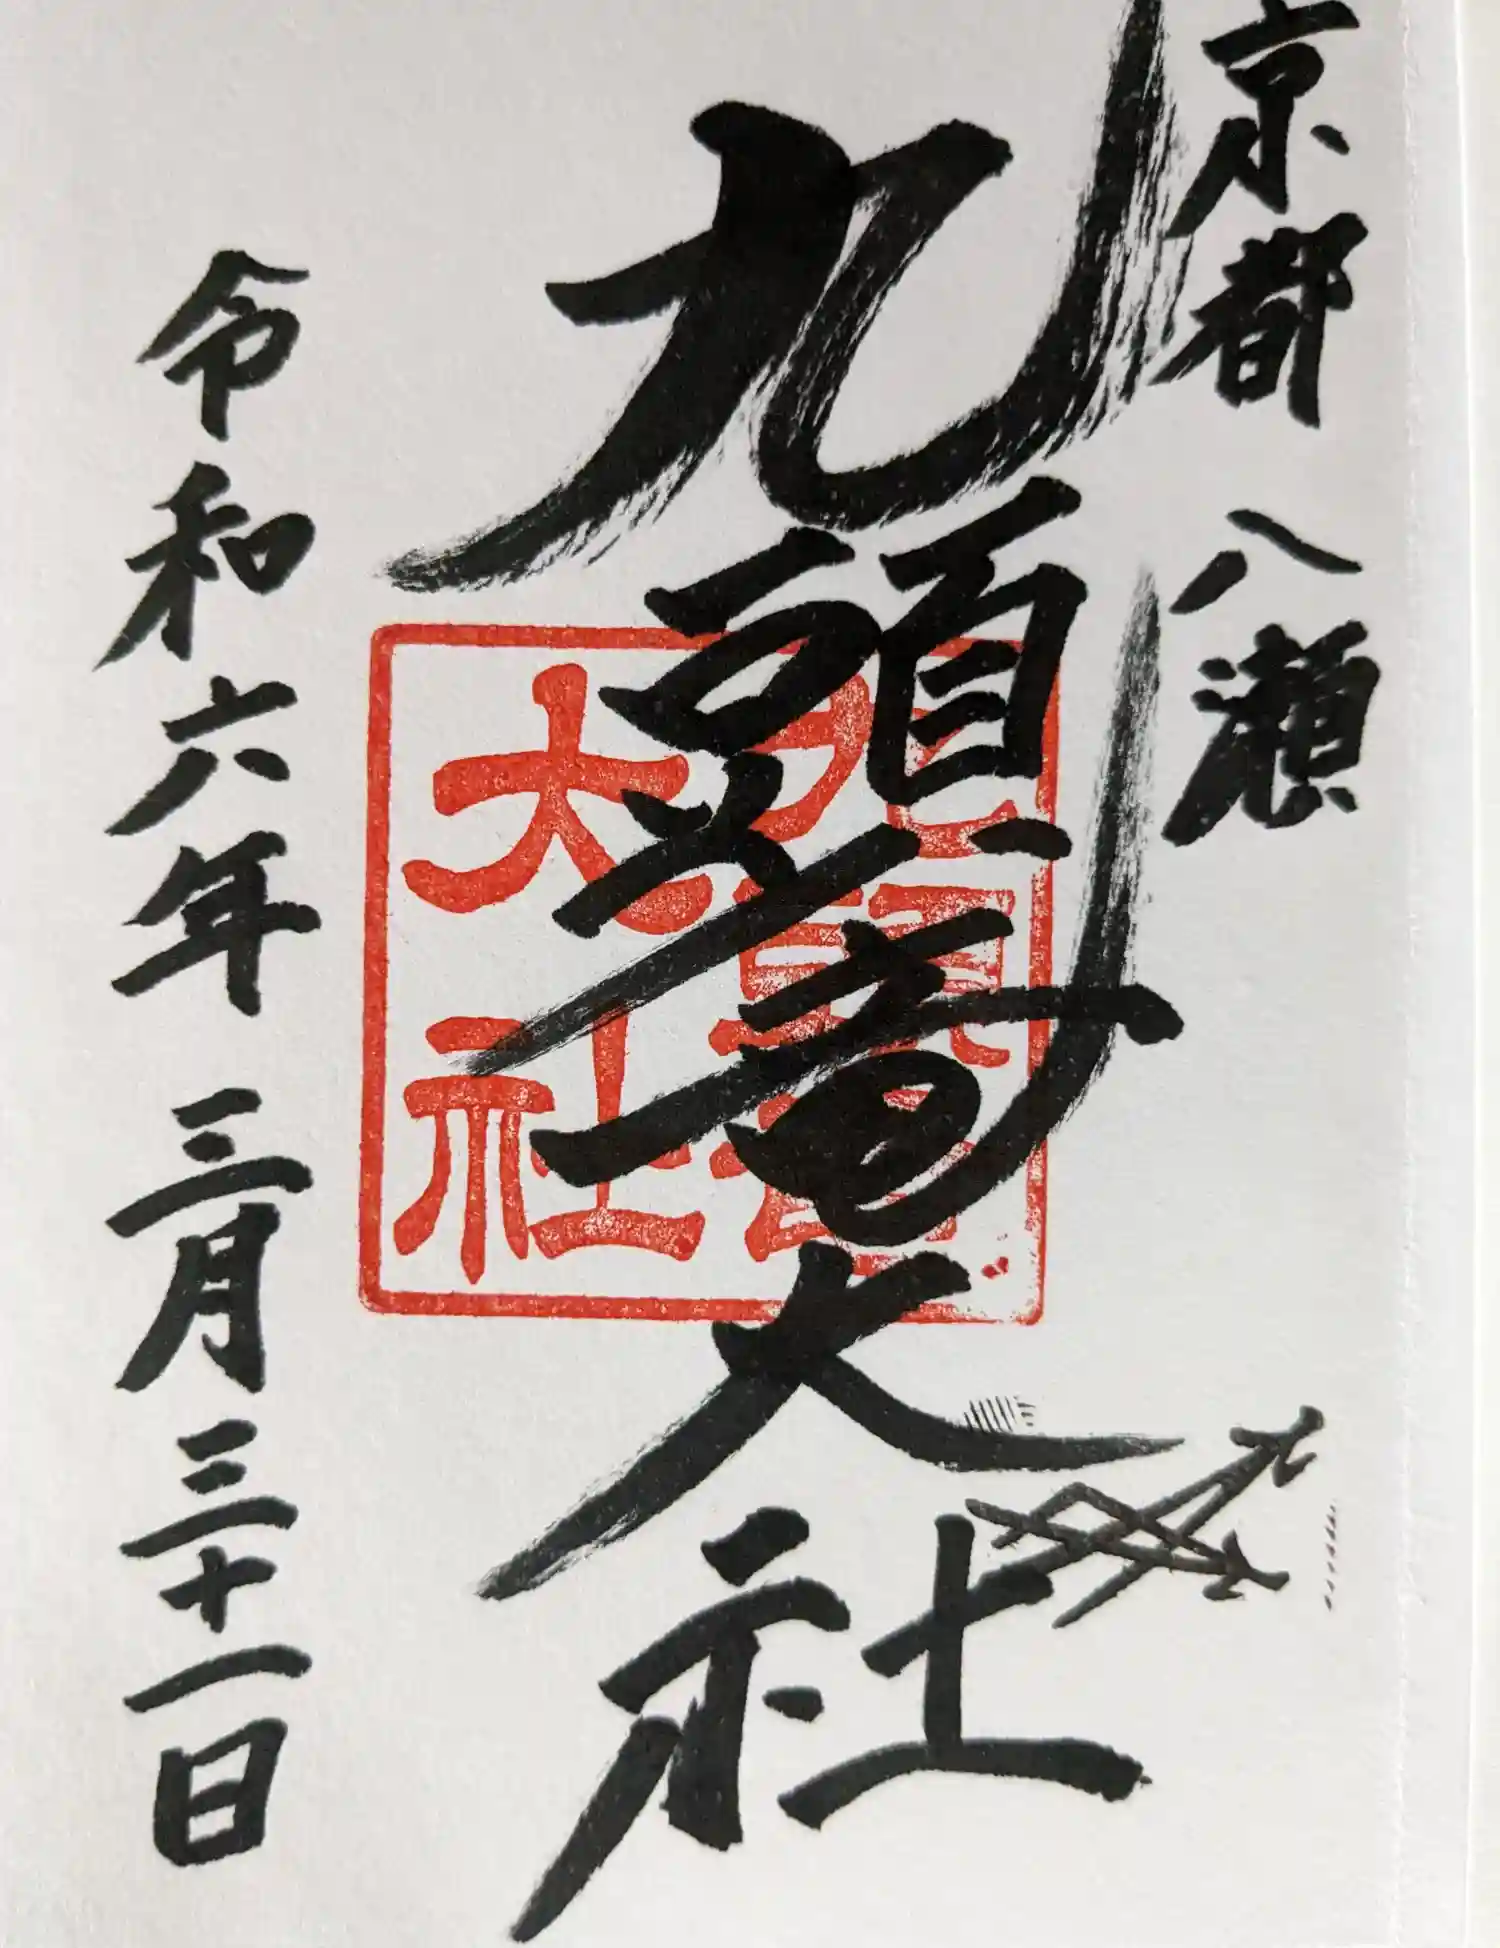 京都 八瀬
九頭竜大社
大社
令和六年 三月三十一日